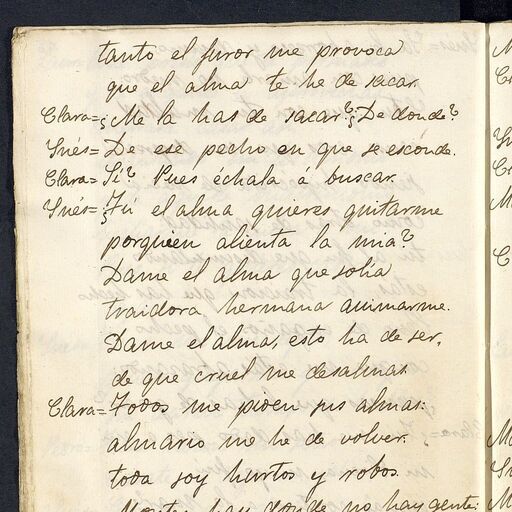 tanto el furor me provoca
que el alma te he de sacar.
Clara= ¿Me la has de sacar? ¿De donde?
Inés= De ese pecho en que se esconde.
Clara= Sí? Pues échala á buscar.
Inés= ¿Tú el alma quieres quitarme
porquien alienta la mia?
Dame el alma que solía
traidora hermana animarme.
Dame el alma, esto ha de ser,
de que cruel me desalmas
Clara= Todos me piden sus almas:
almario me he de volver.
toda soy hurtos y robos.
Montes hay donde no hay gente: